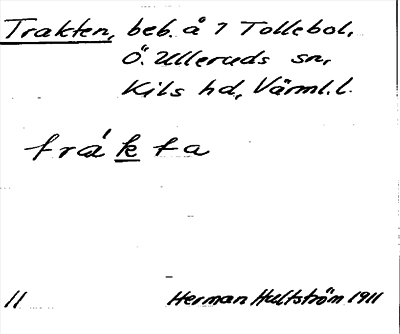 Trakten, beb. å 7 Tollebol,
Ö. Ulleruds sn,
Kils hd, Värml. l.
fra´kta
11 Herman Hultström 1911